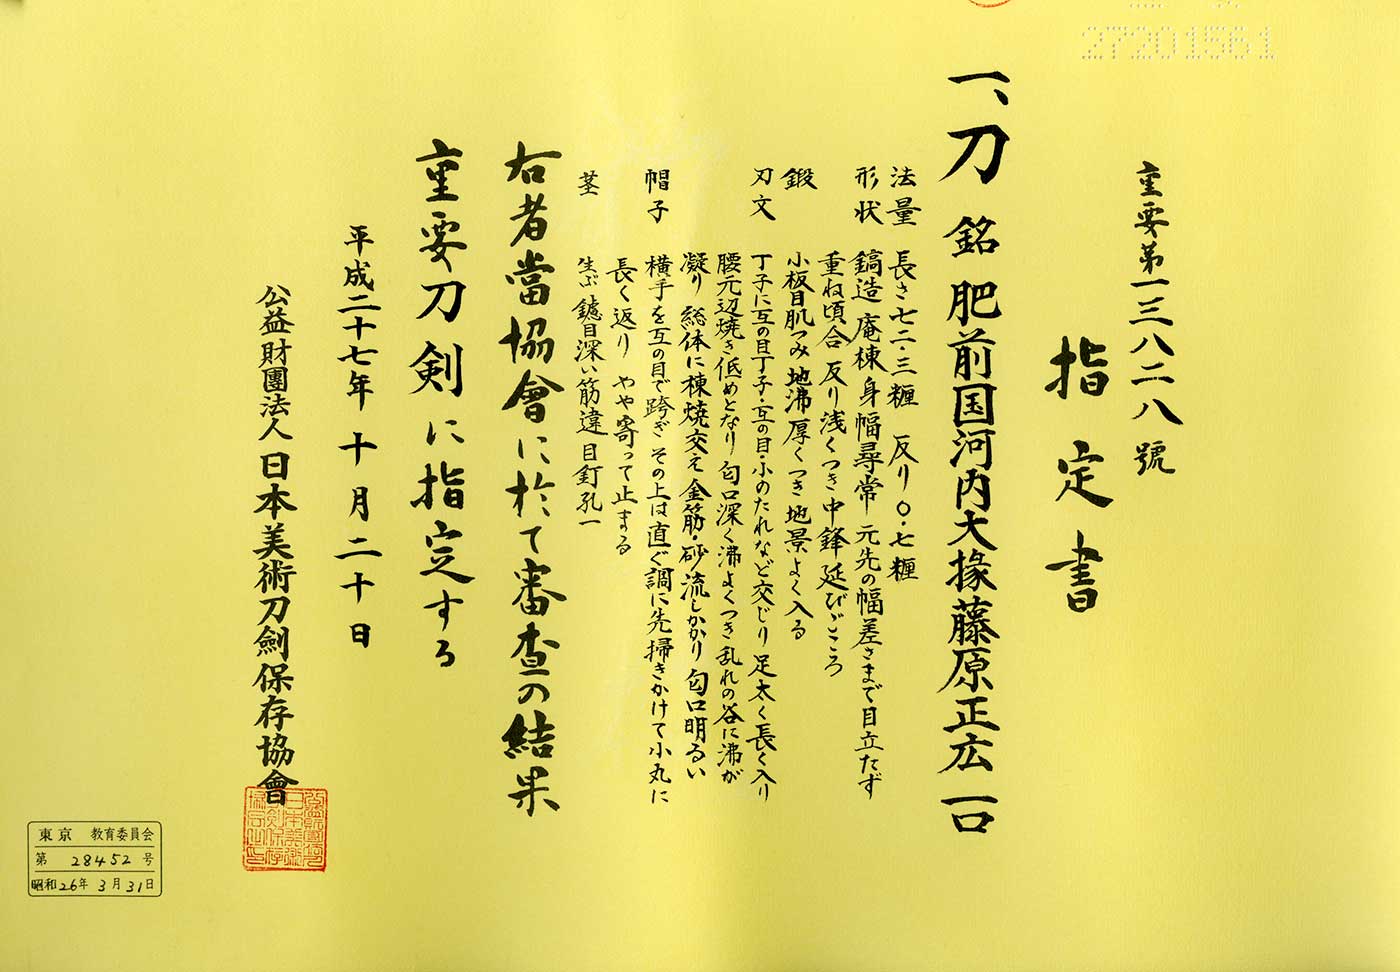 27201561
重要第一三八二八號
指定書
一、刀 銘 肥前国河内大掾藤原正広 一口
法量 長さ七二・三糎 反り〇・七糎
形状 鎬造 庵棟 身幅尋常 元先の幅差さまで目立たず
重ね頃合 反り浅くつき 中鋒延びごころ
鍛 小板目肌つみ 地沸厚くつき 地景よく入る
刃文 丁子に互の目丁子・互の目・小のたれなど交じり 足太く長く入り
腰元辺焼き低めとなり 匂口深く 沸よくつき 乱れの谷に沸が
凝り 総体に棟焼交え 金筋・砂流しかかり 匂口明るい
帽子 横手を互の目で跨ぎ その上は直ぐ調に先掃きかけて小丸に
長く返り やや寄って止まる
茎 生ぶ 鑢目深い筋違 目釘孔一
右者當協會に於て審査の結果
重要刀剣に指定する
平成二十七年十月二十日
公益財團法人日本美術刀劍保存協會
東京 教育委員会
第 28452 号
昭和26年3月31日